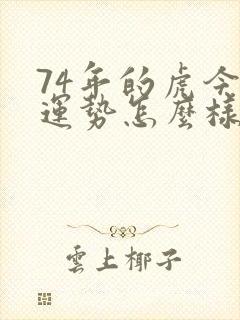 74年的虎今
運勢怎麼樣
雲上椰子